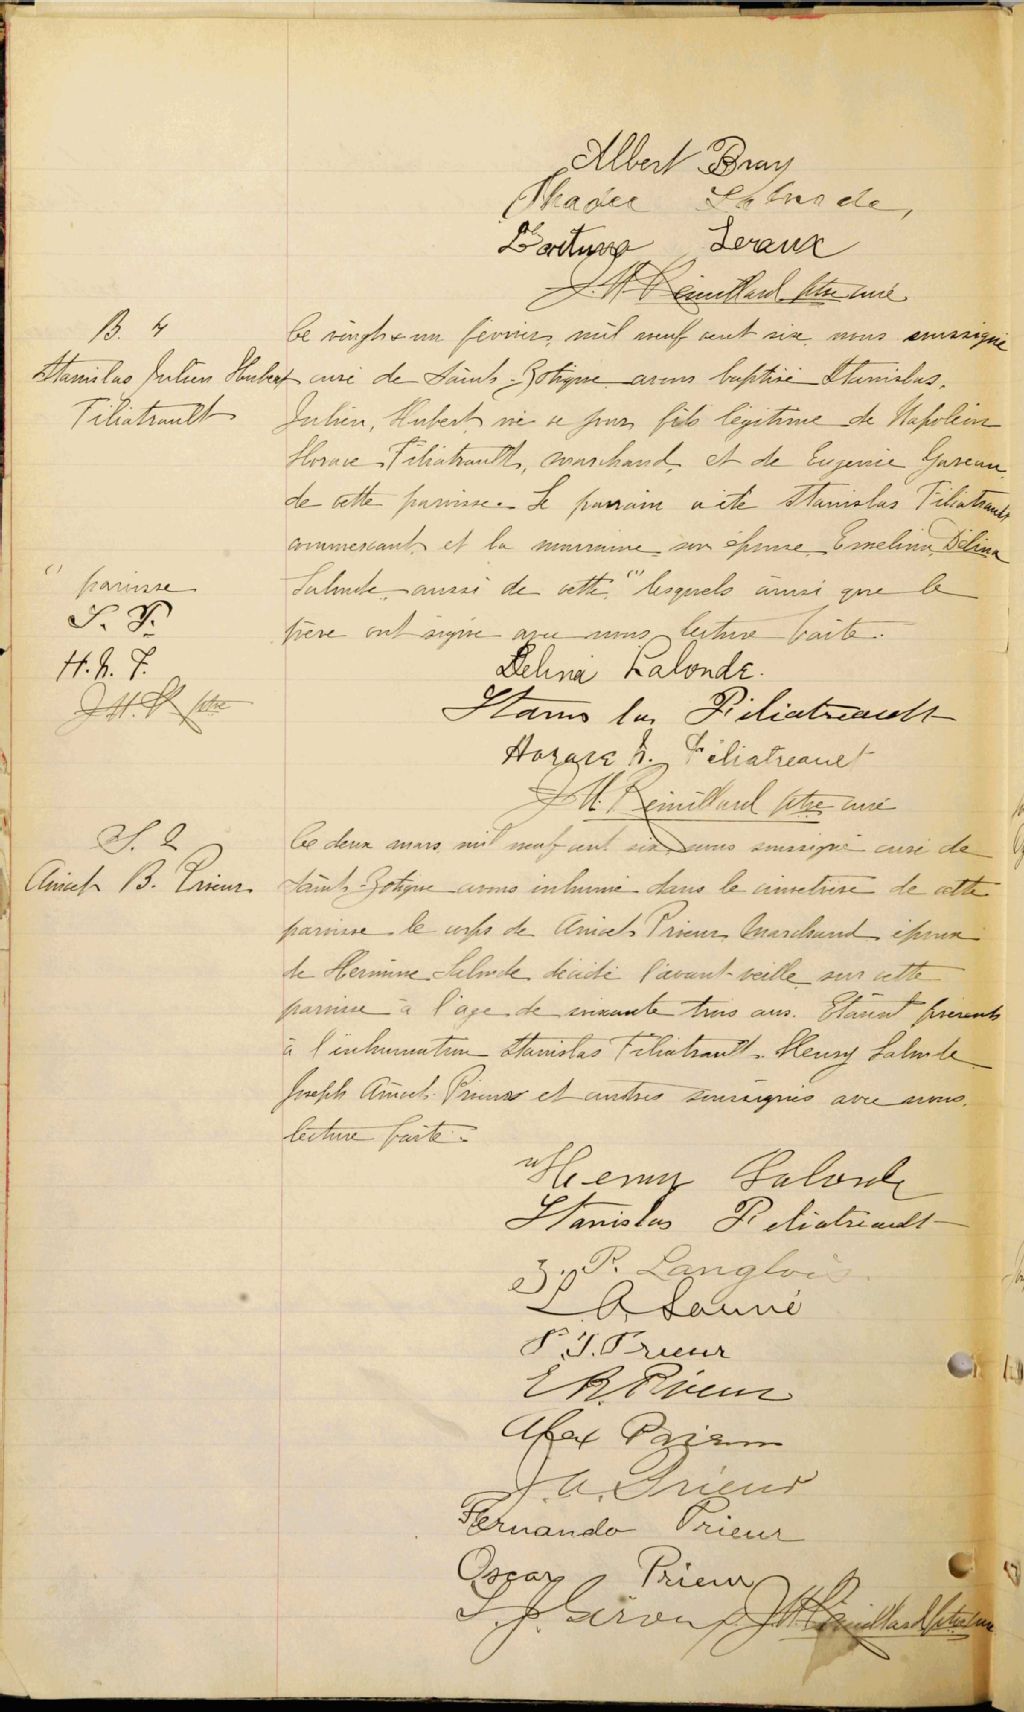 Albert Bray
Thadée Lalonde,
Leroux
J. H. Rémillard ptre curé
B. 4
Stanislas Julien Hubert
Filiatrault
Le vingt-un février mil neuf cent six nous soussigné
curé de Saint-Zotique avons baptisé Stanislas,
Julien, Hubert né ce jour fils légitime de Napoléon
Horace Filiatrault, marchand, et de Eugenie Gareau
de cette paroisse. Le parrain a été Stanislas Filiatrault
commercant, et la marraine son épouse Emelina Délina
Lalonde aussi de cette " lesquels ainsi que le
père ont signé avec nous, lecture faite.
" paroisse
S. F.
H. N. F.
J. H. R ptre
Delina Lalonde.
Stanis las Filiatreault
Horace N. Filiatreault
J. H. Rémillard ptre curé
S. 2
Anicet B. Prieur
Le deux mars mil neuf cent six, nous soussigné curé de
Saint-Zotique avons inhumé dans le cimetière de cette
paroisse le corps de Anicet Prieur Marchand époux
de Hermine Lalonde décédé l'avant-veille sur cette
paroisse à l'age de soixante trois ans. Etaient présents
à l'inhumation Stanislas Filiatrault, Henry Lalonde
Joseph Anicet Prieur et autres soussignés avec nous.
lecture faite.
Henry Lalonde
Stanislas Filiatreault
Z. P. Langlois
L A. Sauvé
P. J. Prieur
E R. Prieur
Alex Prieur
J. A. Prieur
Fernando Prieur
Oscar Prieur
J. H. Rémillard ptre curé